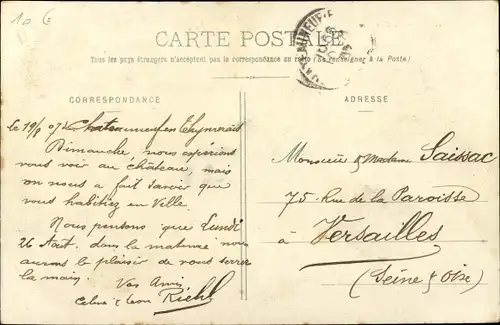 10 €
CARTE POSTALE
Tous les pays étrangers n'acceptent pas la correspondance au recto (Se renseigner à la Poste)
CORRESPONDANCE
le 19/8 07 Chateauneuf en Thymerais
Dimanche nous espérions
vous voir au château, mais
on nous a fait savoir que
vous habitiez en Ville.
Nous pensons que Lundi
26 Aout. dans la matinée nous
aurons le plaisir de vous serrer
la main.
Vos Amis,
Celine & Leon Riehl
ADRESSE
Monsieur & Madame Saissac
75 Rue de la Paroisse
à Versailles
(Seine & Oise)